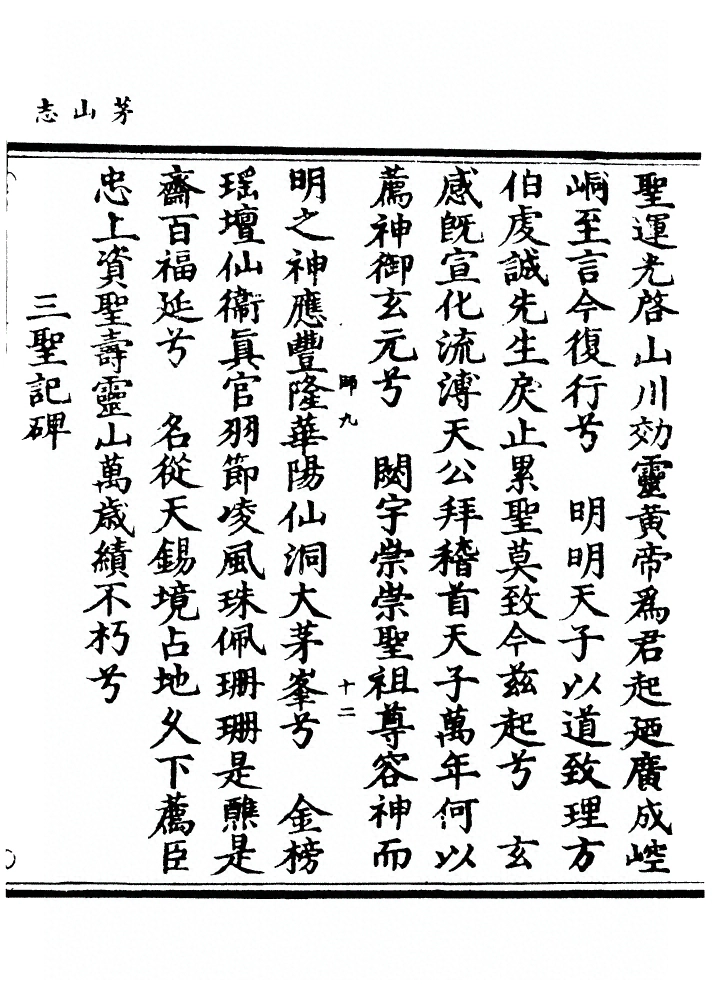 茅山志
聖運光啓山川効靈黃帝爲君起廼廣成崆
峒至言今復行兮　明明天子以道致理方
伯虔誠先生戾止累聖莫致今茲起兮　玄
感旣宣化流溥天公拜稽首天子萬年何以
薦神御玄元兮　闕宇崇崇聖祖尊容神而
師九
十二
明之神應豐隆華陽仙洞大茅峯兮　金榜
瑶壇仙衞眞官羽節凌風珠佩珊珊是醮是
齋百福延兮　名從天錫境占地久下薦臣
忠上資聖壽靈山萬歲績不朽兮
三聖記碑